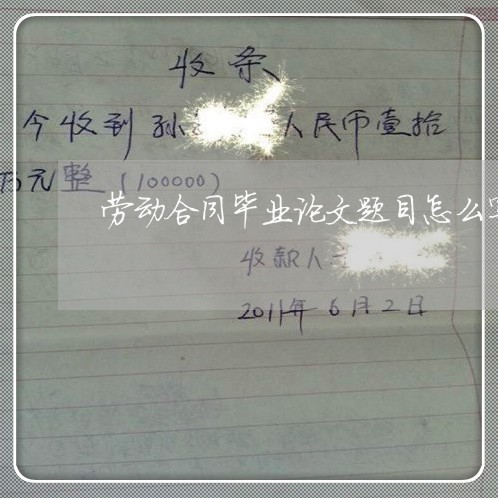 收条
今收到孙 人民币壹拾
万元整(100000)
劳动合同毕业论文题目怎么
收款人
2011年6月2日